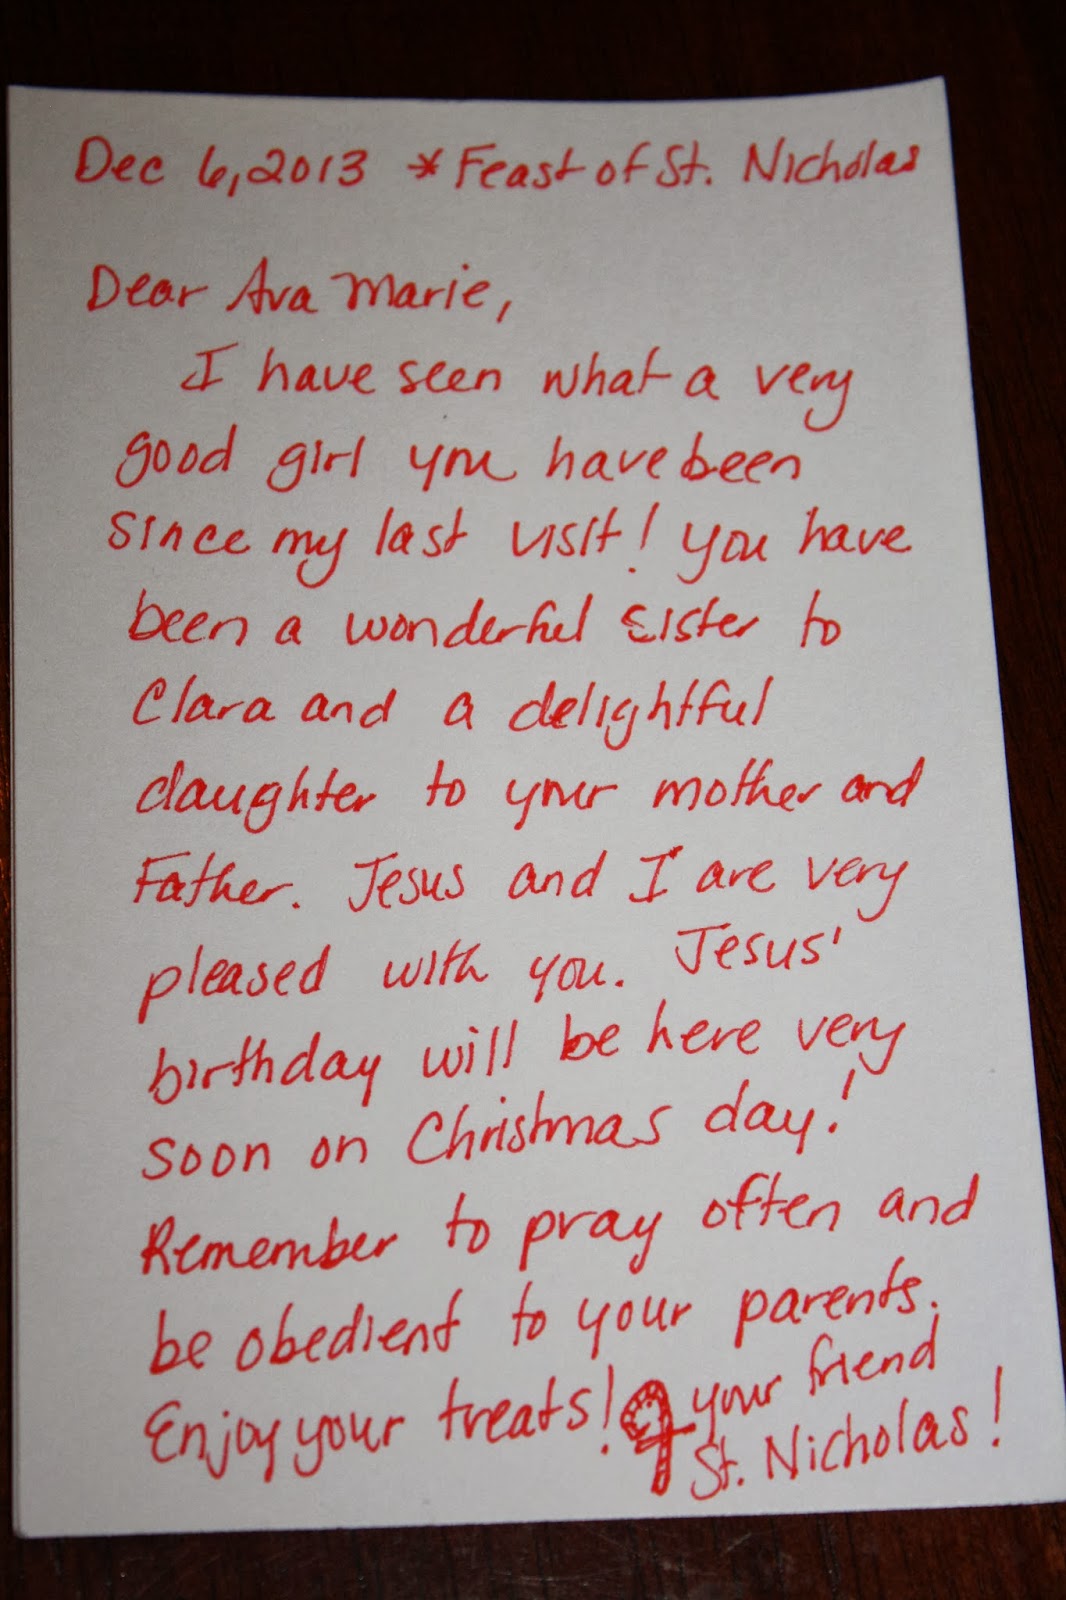 Dec 6, 2013 * Feast of St. Nicholas
Dear Ava Marie,
I have seen what a very
good girl you have been
since my last visit! You have
been a wonderful sister to
Clara and a delightful
daughter to your mother and
Father. Jesus and I are very
pleased with you. Jesus'
birthday will be here very
soon on Christmas day!
Remember to pray often and
be obedient to your parents.
Enjoy your treats! your friend
St. Nicholas!